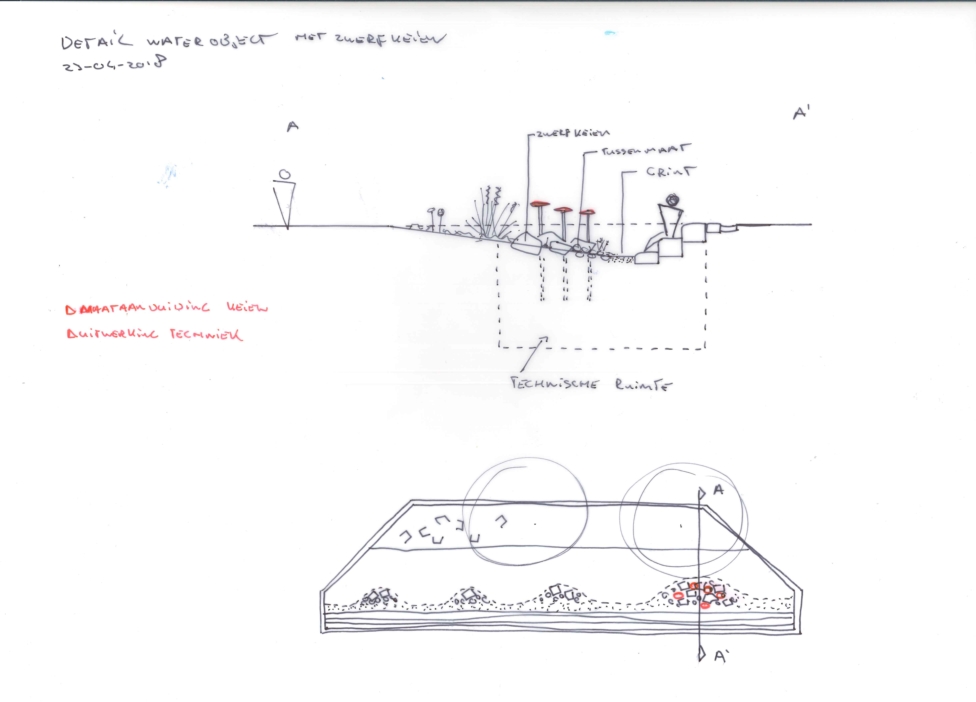 DETAIL WATEROBJECT MET ZWERFKEIEN
23-04-2018
A
A'
ZWERFKEIEN
TUSSENMAAT
GRINT
D MAATAANDUIDING KEIEN
D UITWERKING TECHNIEK
TECHNISCHE RUIMTE
A
A'